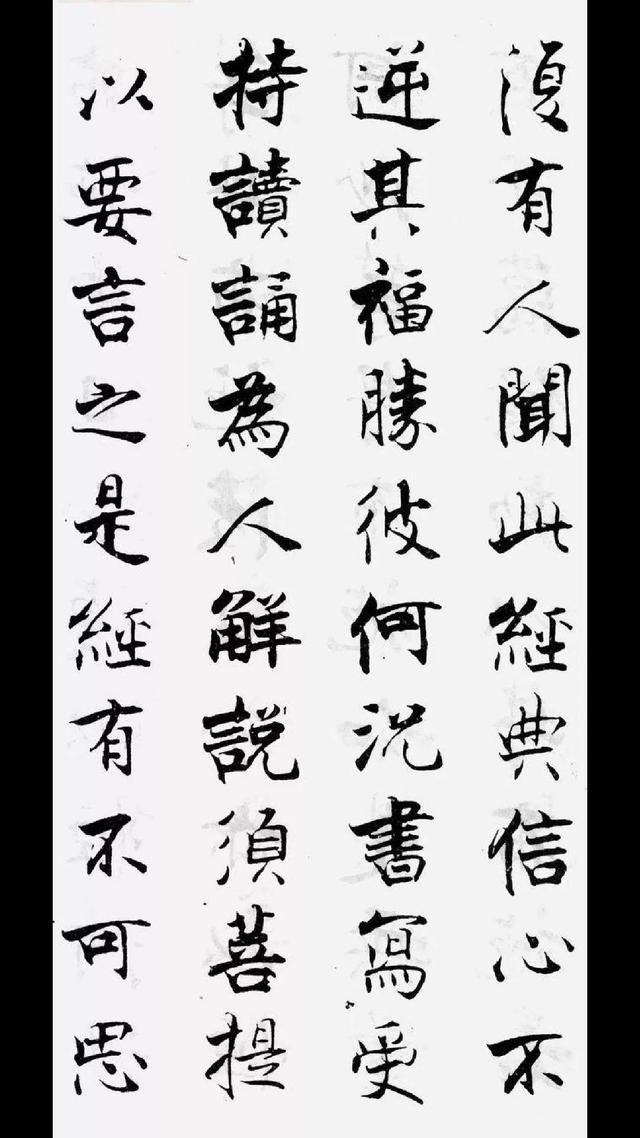 復有人聞此經典信心不
逆其福勝彼何況書寫受
持讀誦為人解說須菩提
以要言之是經有不可思